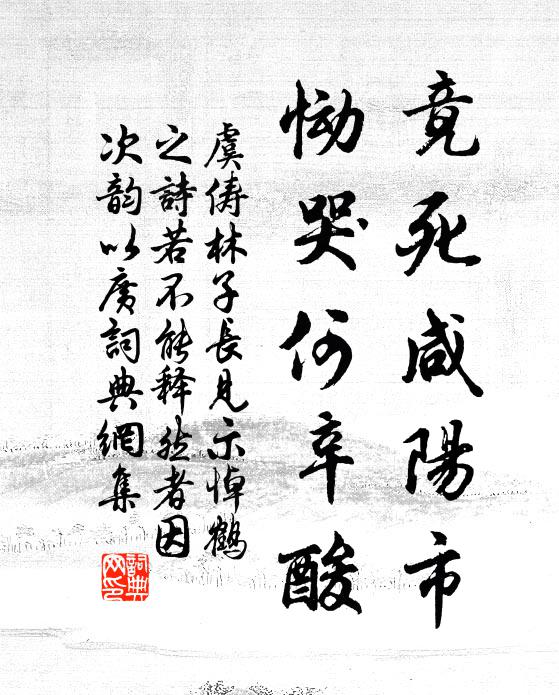 竟死咸陽市
慟哭何辛酸
虞儔林子長見示悼鶴
之詩若不能释然者因
次韵以廣詞典網集
詞典
网印